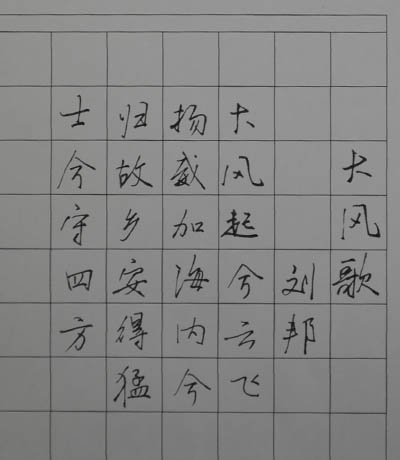 大风歌
刘邦
大风起兮云飞
扬威加海内兮
归故乡安得猛
士兮守四方